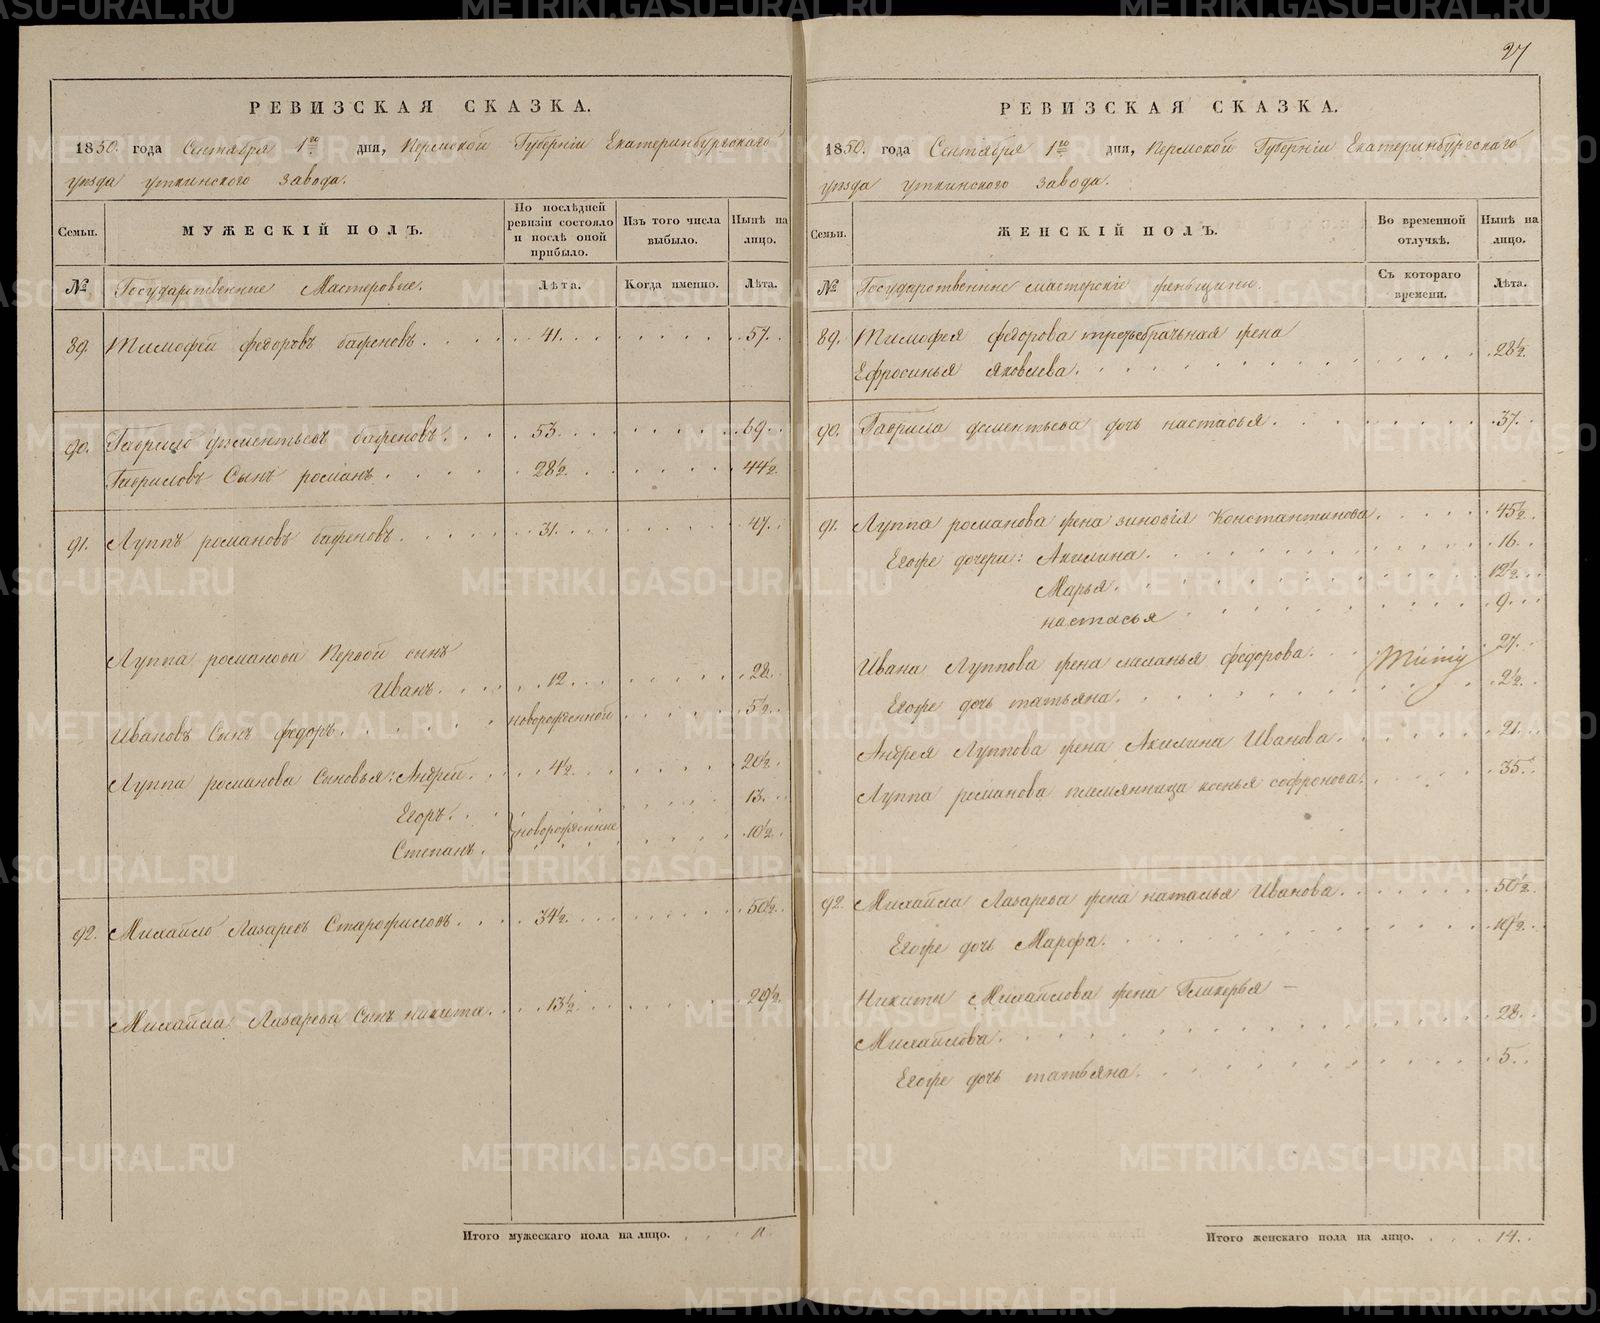 27
РЕВИЗСКАЯ СКАЗКА.
1850. года Сентября 1го дня, Пермской Губерніи Екатеринбургскаго
уезда уткинского завода.
Семьи.
МУЖЕСКІЙ ПОЛЪ.
По послѣдней ревизіи состояло и послѣ оной прибыло.
Изъ того числа выбыло.
Нынѣ на лицо.
№
Государственные Мастеровые.
Лѣта.
Когда именно.
Лѣта.
89. Тимофей федоровъ баженовъ 41. 57.
90. Гаврило дементьевъ баженовъ 53. 69.
Гавриловъ Сынъ романъ 28½. 44½.
91. Луппъ романовъ баженовъ 31. 47.
Луппа романова Первой сынъ
Иванъ. 12. 28.
Ивановъ Сынъ федоръ. новорожденной 5½.
Луппа романова Сыновья: Андрей. 4½. 20½.
Егоръ. 13.
новорожденные
Степанъ. 10½.
92. Михайло Лазаревъ Старофиловъ. 34½. 50½.
Михайла Лазарева сынъ никита. 13½. 29½.
Итого мужескаго пола на лицо. 11.
РЕВИЗСКАЯ СКАЗКА.
1850. года Сентября 1го дня, Пермской Губерніи Екатеринбургскаго
уезда уткинского завода.
Семьи.
ЖЕНСКІЙ ПОЛЪ.
Во временной отлучкѣ.
Нынѣ на лицо.
№
Государственные мастерскіе женщины.
Съ котораго времени.
Лѣта.
89. Тимофея федорова третьебрачьная жена
Ефросинья Яковлева. 28½.
90. Гаврила дементьева дочь настасья. 37.
91. Луппа романова жена зиновія Константинова. 45½.
Егоже дочери: Акилина. 16.
Марья. 12½.
настасья 9.
Ивана Луппова жена маланья федорова. 27.
Егоже дочь татьяна. 2½.
Андрея Луппова жена Акилина Иванова. 21.
Луппа романова племянница ксенья софронова. 35.
92. Михайла Лазарева жена наталья Иванова. 50½.
Егоже дочь Марфа. 19½.
Никиты Михайлова жена Гликерья –
Михайлова. 28.
Егоже дочь татьяна. 5.
Итого женскаго пола на лицо. 14.
METRIKI.GASO-URAL.RU